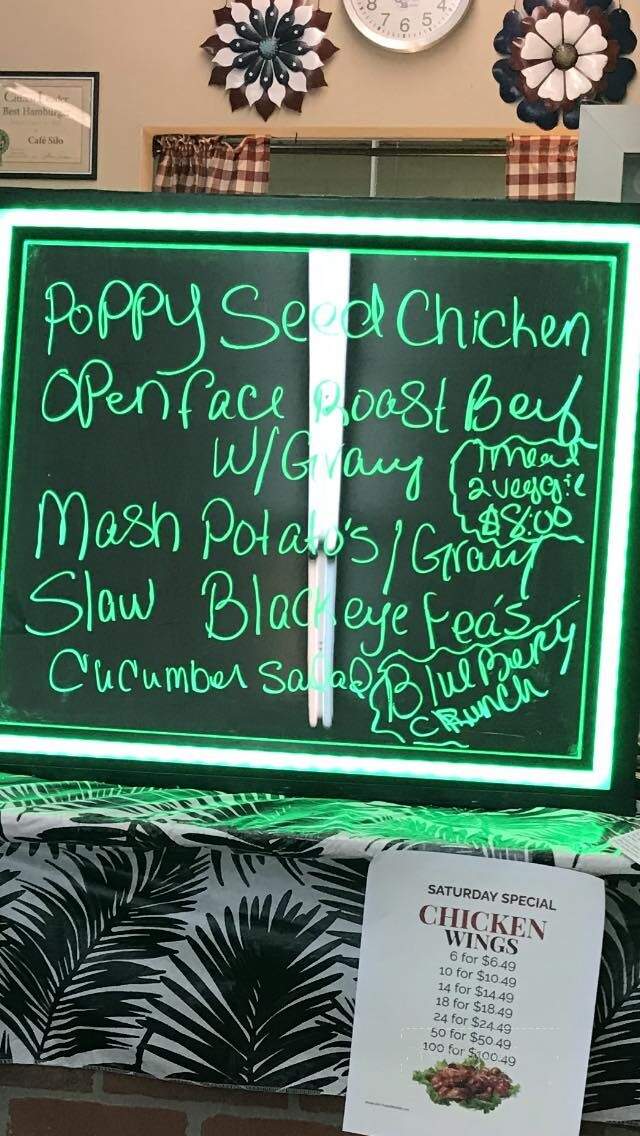 8 7 6 5 4
Best Hamburger
Café Silo
Poppy Seed Chicken
Open face Roast Beef
W/Gravy
1 meat
2 veggie
$8.00
Mash Potato's/Gravy
Slaw Blackeye Peas
Cucumber Salad
Blue Berry
Crunch
SATURDAY SPECIAL
CHICKEN
WINGS
6 for $6.49
10 for $10.49
14 for $14.49
18 for $18.49
24 for $24.49
50 for $50.49
100 for $100.49